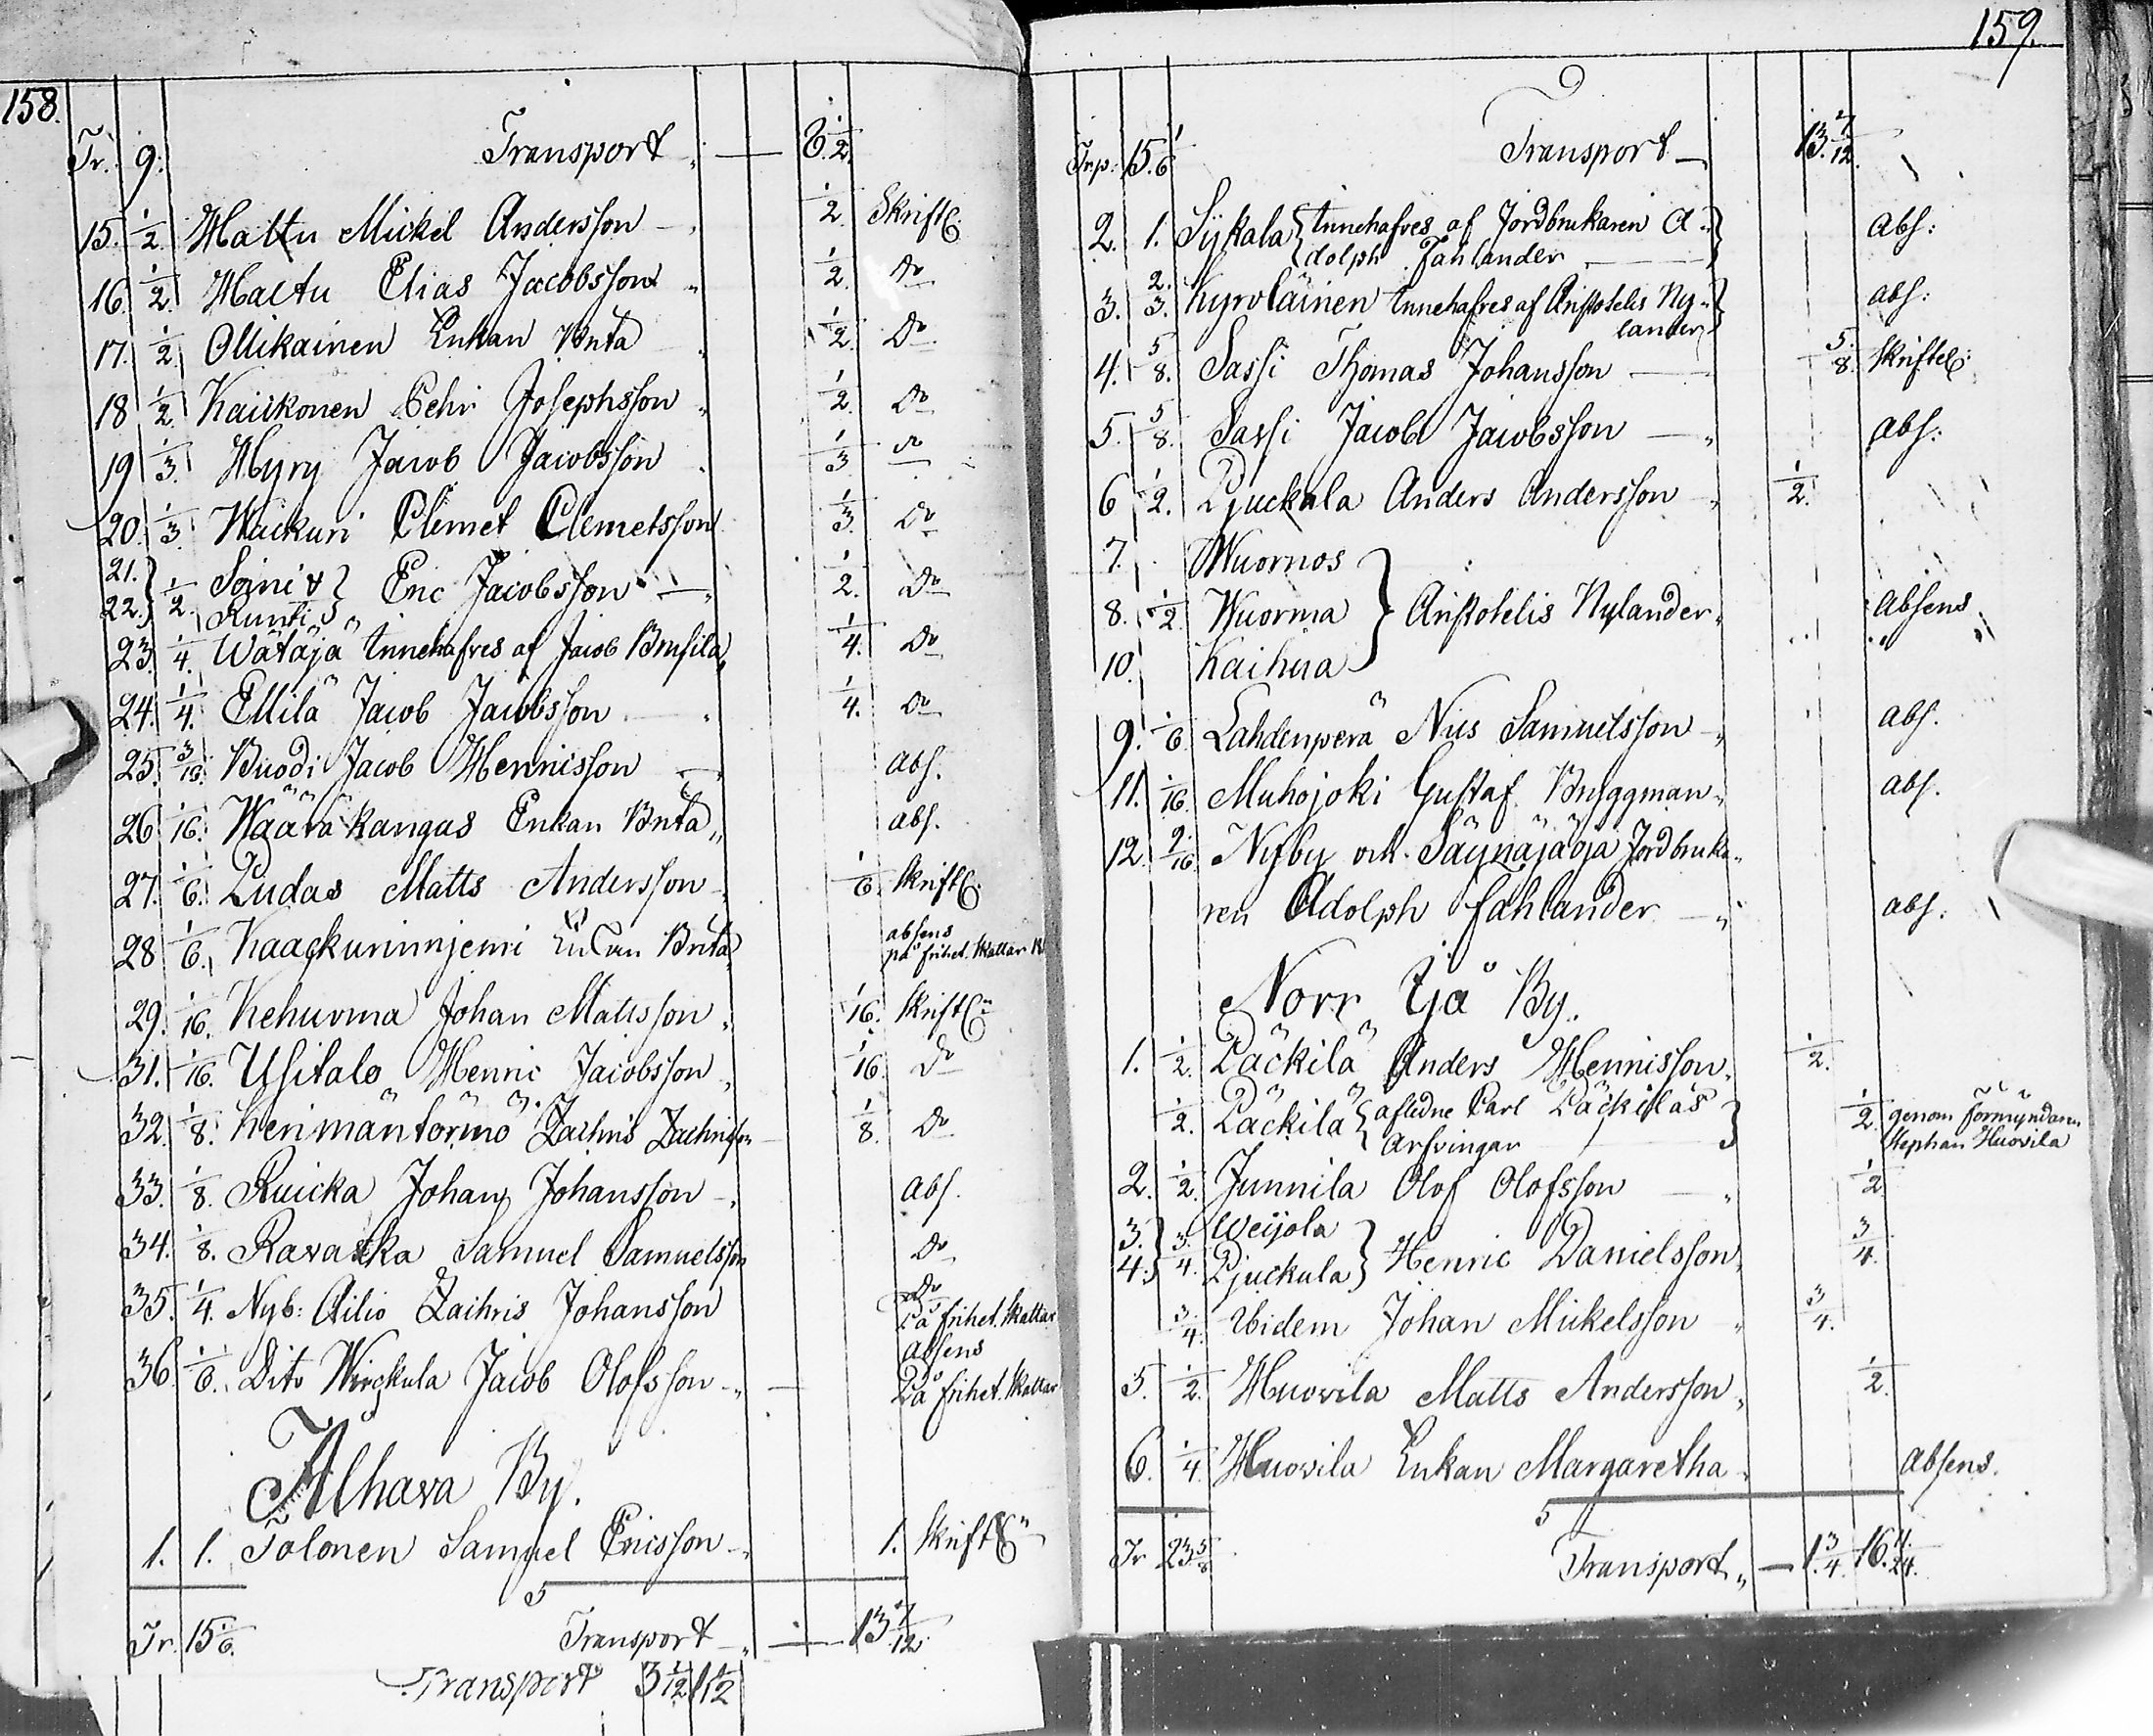 158.
Tr. 9. Transport „ — 8 1/2
15. 1/2. Mattu Mickel Andersson — „ 1/2. Skriftl:
16. 1/2. Mattu Elias Jacobsson „ 1/2. Do
17. 1/2. Ollikainen Enkan Brita „ 1/2. Do
18 1/2. Kaickonen Pehr Josephsson „ 1/2. Do
19 1/3. Myry Jacob Jacobsson „ 1/3 Do
20. 1/3. Wackuri Clemet Clemetsson 1/3. Do
21. } 1/2. Soini & } Eric Jacobsson — „ 1/2. Do
22. } Runti
23. 1/4. Wätäjä innehafves af Jacob Brusila, 1/4. Do
24. 1/4. Ellilä Jacob Jacobsson — „ 1/4. Do
25. 3/16. Buodi Jacob Hennicsson — „ abs.
26 1/16. Wäärä kangas Enkan Brita „ abs.
27. 1/6. Pudas Matts Andersson — „ 1/6. Skriftl:
28 1/6. Kaackurinnjemi Enkan Brita absens
på frihet. Skattar
29. 1/16. Kehusma Johan Mattsson „ 1/16. Skriftl:
31. 1/16. Usitalo Henric Jacobsson „ 1/16. Do
32. 1/8. Kerimäntörmö Zachris Zachrisson 1/8. Do
33. 1/8. Ruicka Johan Johansson — „ abs.
34. 1/8. Ravaska Samuel Samuelsson Do
35. 1/4. Nyb: Ailio Zachris Johansson Do
På frihet. Skattar
36. 1/6. Dito Wirckula Jacob Olofsson „ — absens
På frihet. Skattar
Alhava By.
1. 1. Tolonen Samuel Ericsson — „ 1. Skriftl:
Tr. 15 1/6. Transport — „ — 13 7/12.
Transport 3 1/2 1 1/2
159.
Trp: 15. 1/6 Transport — 13. 7/12.
2. 1. Sijkala { innehafves af Jordbrukaren A- } abs:
dolph Fahlander —
3. 2/3. Kyroläinen innehafves af Aristotelis Ny- } abs:
lander
4. 5/8. Sassi Thomas Johansson — 5/8. Skriftl:
5. 5/8. Sassi Jacob Jacobsson — „ abs:
6 1/2. Pjuckala Anders Andersson „ 1/2.
7. Wuornos }
8. 1/2 Wuorma } Aristotelis Nylander „ absens
10. Kaihua }
9. 1/6 Lahdenperä Nils Samuelsson — „ abs.
11. 1/16. Muhojoki Gustaf Bryggman „ abs.
12. 9/16. Nyby och Säynäjäoja Jordbruka-
ren Adolph Fahlander — „ abs.
Norr Ijå By.
1. 1/2. Päckilä Anders Hennicsson „ 1/2.
1/2. Päckilä { aflidne Carl Päckiläs } 1/2 genom Förmyndaren
arfvingar Stephan Huovila
2. 1/2. Junnila Olof Olofsson — „ 1/2
3. } 3/4. Weijola } Henric Danielsson „ 3/4.
4. } Pjuckula }
3/4. Ibidem Johan Mickelsson „ 3/4.
5. 1/2. Huovila Matts Andersson „ 1/2.
6. 1/4. Huovila Enkan Margaretha „ absens.
Tr 23 5/8 Transport „ — 1. 3/4. 16. 11/24.